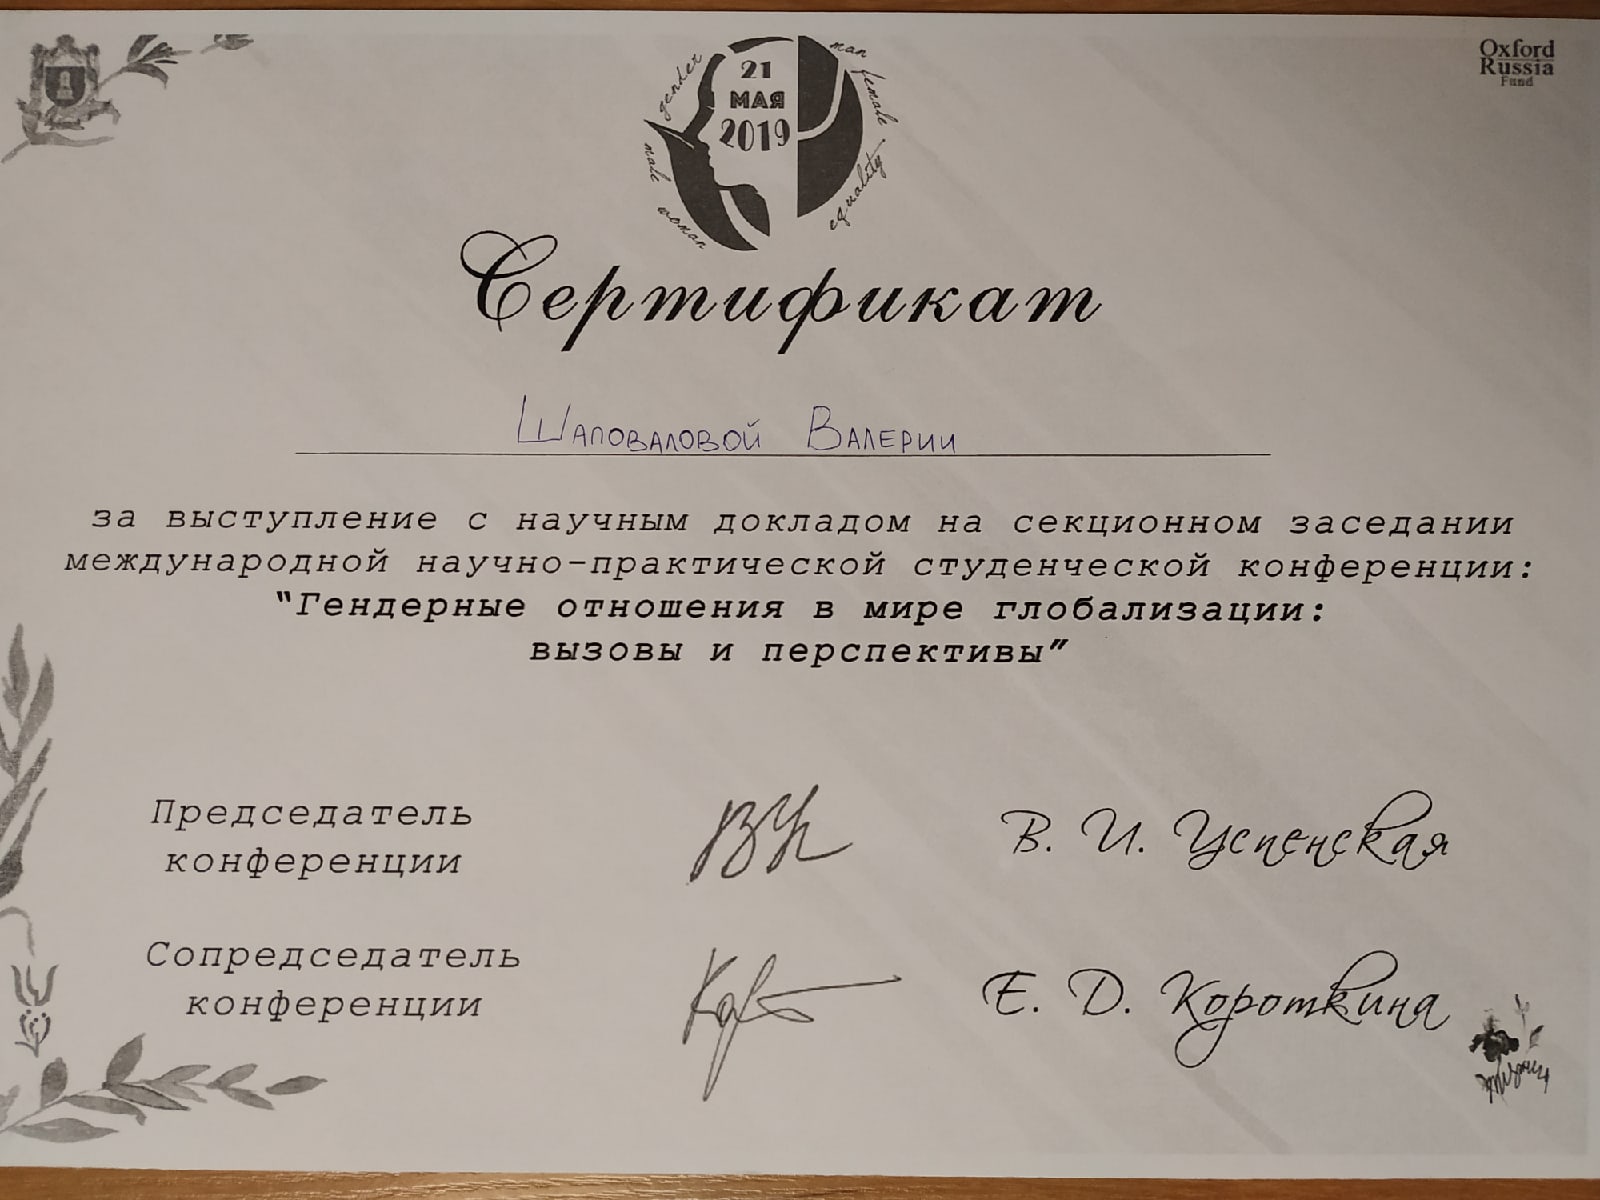 Oxford
Russia
Fund
gender
21
МАЯ
2019
man female
male
woman
equality
Сертификат
Шаповаловой Валерии
за выступление с научным докладом на секционном заседании
международной научно-практической студенческой конференции:
"Гендерные отношения в мире глобализации:
вызовы и перспективы"
Председатель
конференции
В. И. Успенская
Сопредседатель
конференции
Е. Д. Короткина